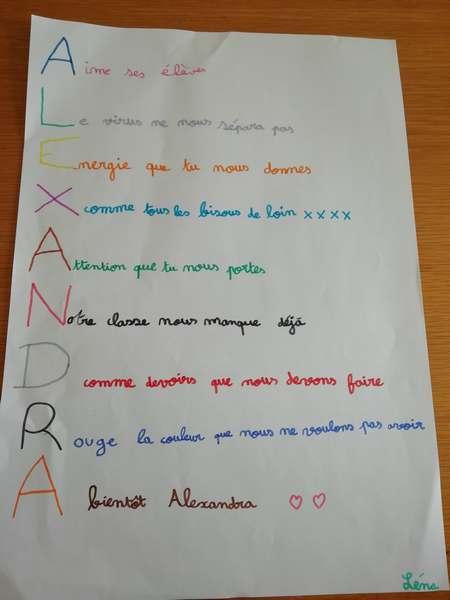 Aime ses élèves
Le virus ne nous sépara pas
Energie que tu nous donnes
X comme tous les bisous de loin x x x x
Attention que tu nous portes
Notre classe nous manque déjà
D comme devoirs que nous devons faire
Rouge la couleur que nous ne voulons pas avoir
A bientôt Alexandra ♡ ♡
Léna